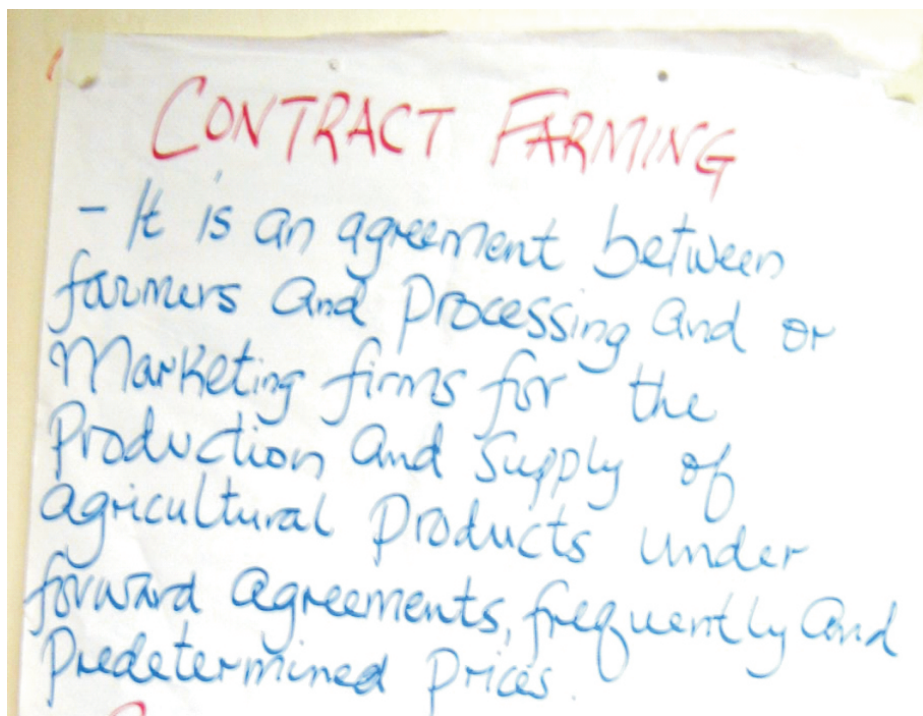 CONTRACT FARMING
- It is an agreement between
farmers and Processing and or
Marketing firms for the
Production and Supply of
agricultural Products under
forward agreements, frequently and
Predetermined prices.